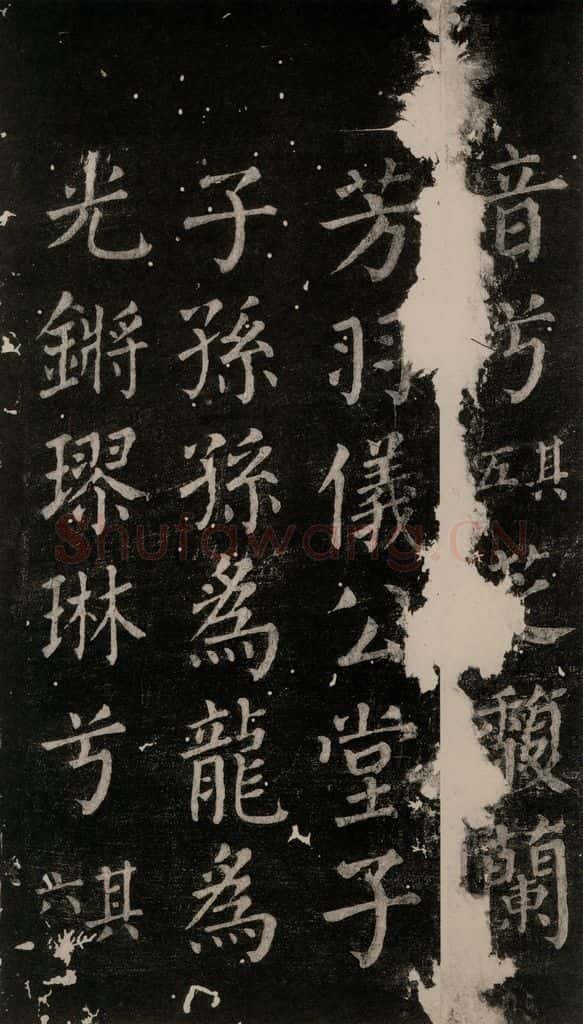 音兮其五芝馥蘭
芳羽儀公堂子
子孫孫為龍為
光鏘璆琳兮其六
Shufawang.CN